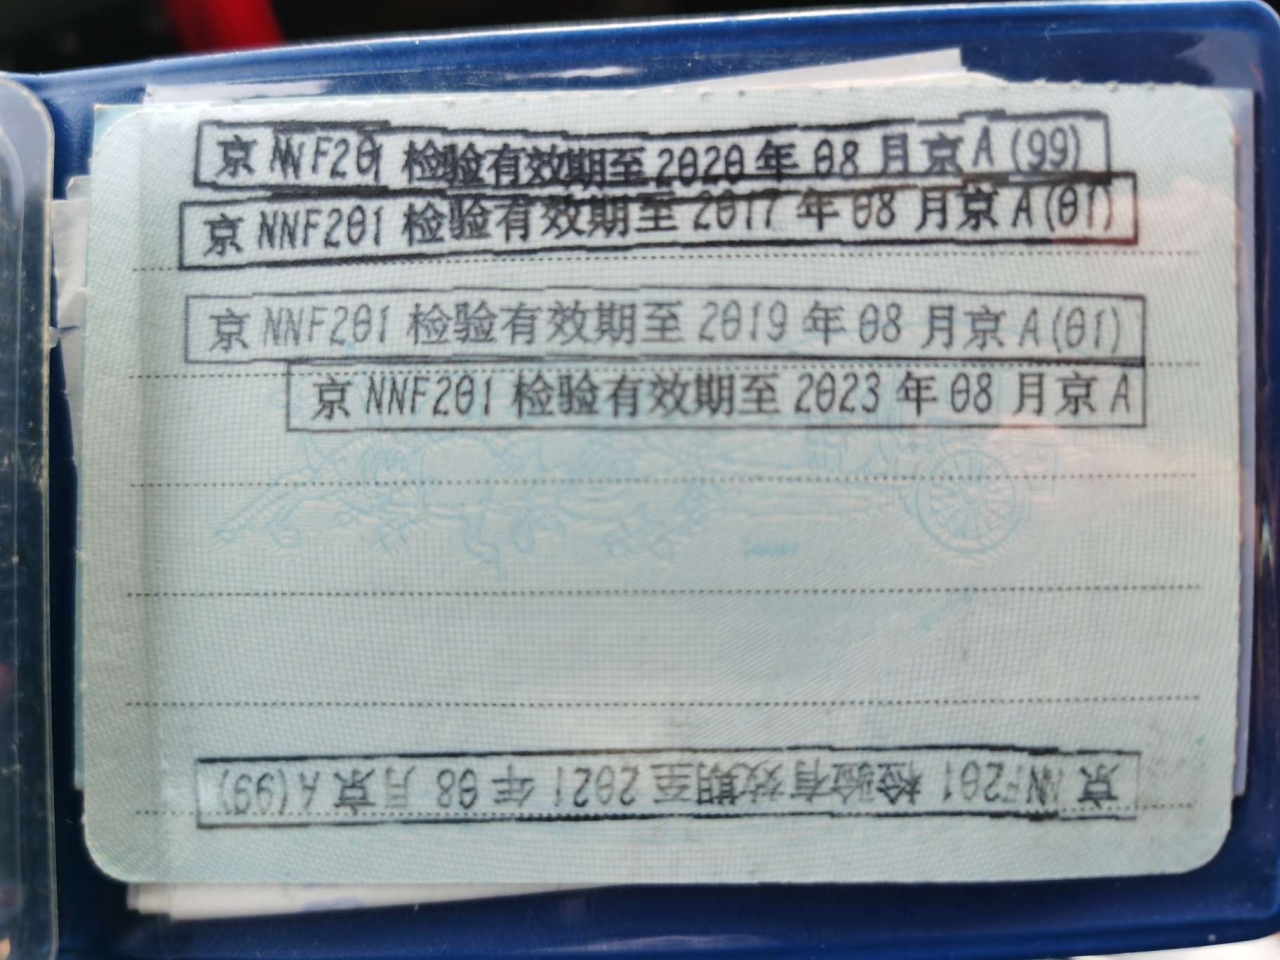 京NNF201 检验有效期至2020年08月京A(99)
京NNF201 检验有效期至2017年08月京A(01)
京NNF201 检验有效期至2019年08月京A(01)
京NNF201 检验有效期至2023年08月京A
京NNF201 检验有效期至2021年08月京A(99)